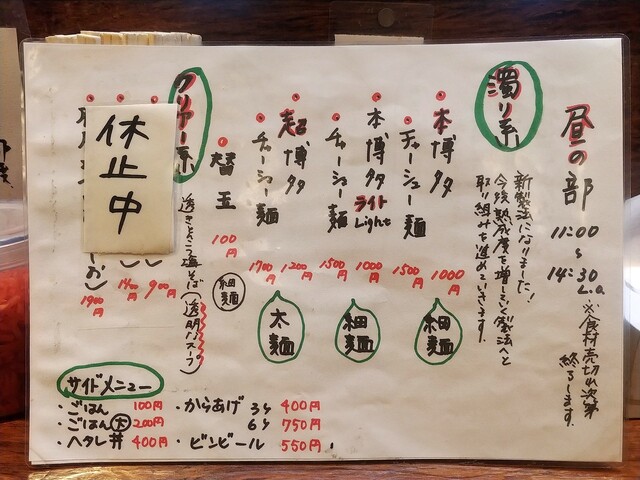 昼の部
11:00
〜
14:30
L.o.
※食材売切れ次第
終ります.
濁り系
新製法になりました!
今後熟成度を増していく製法へと
取り組みを進めていきます.
・本博多
1000円
・チャーシュー麺
1500円
細麺
・本博多
ライト
Light
1000円
・チャーシュー麺
1500円
細麺
・超博多
1200円
・チャーシュー麺
1700円
太麺
・替玉
100円
細麺
クリアー系
透きとおる
そば(透明なスープ)
休止中
900円
1400円
1900円
サイドメニュー
・ごはん 100円
・ごはん 大 200円
・ヘタレ丼 400円
・からあげ 3ヶ 400円
6ヶ 750円
・ビンビール 550円